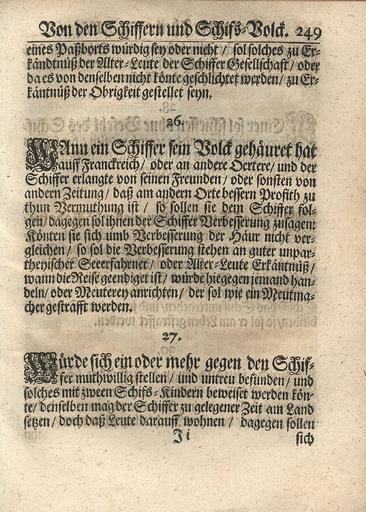 Von den Schiffern und Schifs-Volck. 249
eines Paßborts würdig sey oder nicht / sol solches zu Er-
kändtnüß der Alter-Leute der Schiffer Gesellschaft / oder
da es von denselben nicht könte geschlichtet werden / zu Er-
käntnüß der Obrigkeit gestellet seyn.
26.
WAnn ein Schiffer sein Volck gehäuret hat
auff Franckreich / oder an andere Oertere / und der
Schiffer erlangte von seinen Freunden / oder sonsten von
andern Zeitung / daß am andern Orte bessern Profith zu
thun Vermuthung ist / so sollen sie dem Schiffer fol-
gen / dagegen sol ihnen der Schiffer Verbesserung zusagen:
Könten sie sich umb Verbesserung der Häur nicht ver-
gleichen / so sol die Verbesserung stehen an guter unpar-
theyischer Seeerfahrner / oder Alter-Leute Erkäntnüß /
wann die Reise geendiget ist / würde hiegegen jemand han-
deln / oder Meuterey anrichten / der sol wie ein Meutma-
cher gestrafft werden.
27.
Würde sich ein oder mehr gegen den Schif-
fer muthwillig stellen / und untreu befunden / und
solches mit zween Schifs-Kindern beweiset werden kön-
te / denselben mag der Schiffer zu gelegener Zeit am Land
setzen / doch daß Leute darauff wohnen / dagegen sollen
Ji sich